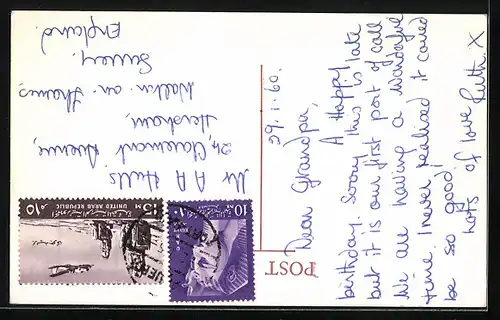 29.1.60.
Dear Grandpa,
A Happy
birthday. Sorry this is late
but it is our first port of call
We are having a wonderful
time. I never realised it could
be so good.
lots of love
Ruth. X
POST
Mr A A Hills
Claremont Avenue,
Hersham,
Walton. on. Thames,
Surrey.
England.
UNITED ARAB REPUBLIC
15 M
١٥
10 M
EGYPT
١٠